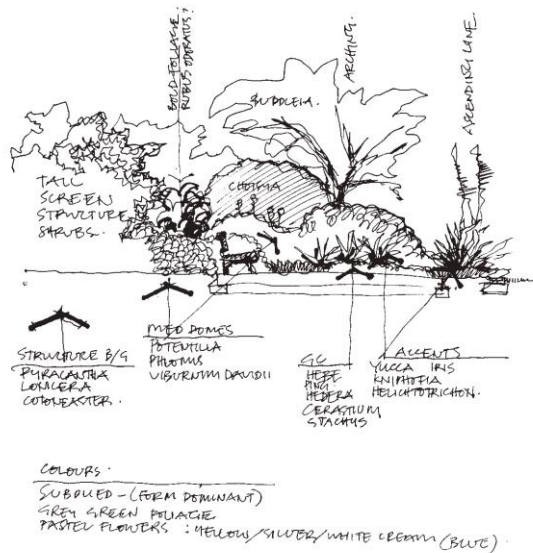 BOLD FOLIAGE:
RUBUS ODORATUS?
BUDDLEIA.
ARCHING.
ASCENDING LINE
TALL
SCREEN
STRUCTURE
SHRUBS.
CHOISYA
STRUCTURE B/G
PYRACANTHA
LONICERA
COTONEASTER.
MED DOMES
POTENTILLA
PHLOMIS
VIBURNUM DAVIDII
GC
HEBE
HEDERA
CERASTIUM
STACHYS
ACCENTS
YUCCA IRIS
KNIPHOFIA
HELICHTOTRICHON.
COLOURS.
SUBDUED - (FORM DOMINANT)
GREY GREEN FOLIAGE
PASTEL FLOWERS : YELLOW/SILVER/WHITE CREAM (BLUE).